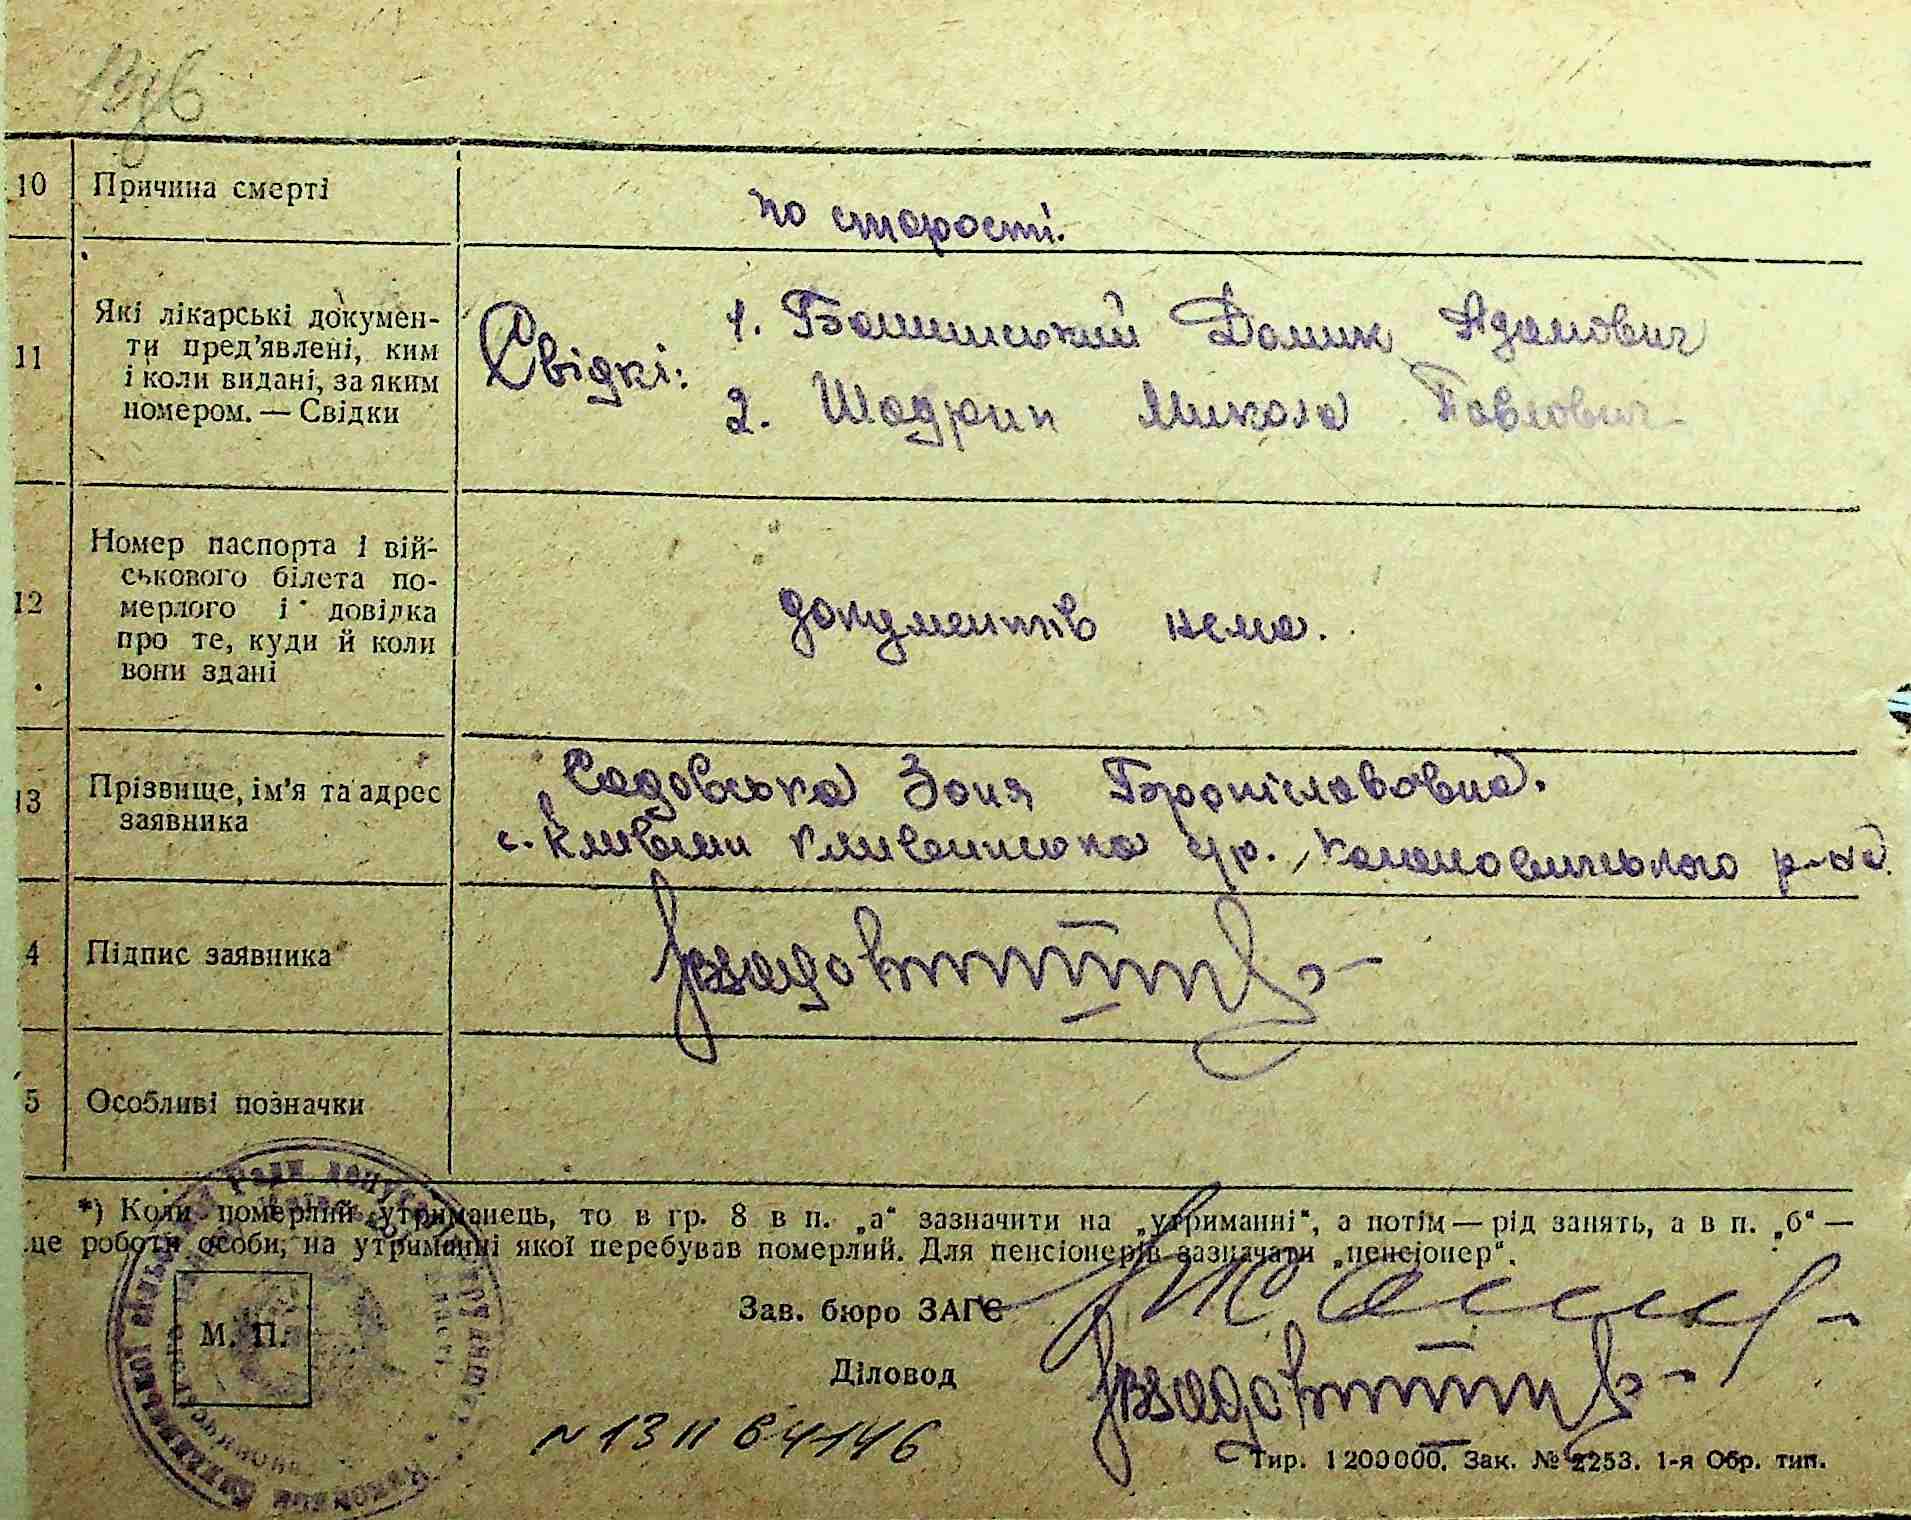 10 Причина смерті
по старості.
11 Які лікарські докумен-
ти пред'явлені, ким
і коли видані, за яким
номером. — Свідки
Свідкі:
1. Домик Адамович
2. Шадрин Микола Павлович
12 Номер паспорта і вій-
ськового білета по-
мерлого і довідка
про те, куди й коли
вони здані
документів нема.
13 Прізвище, ім'я та адрес
заявника
Садовська Зоня Броніславовна.
с. Кливини Кливинська с/р. Кагановичського р-на
4 Підпис заявника
5 Особливі позначки
*) Коли померлий утриманець, то в гр. 8 в п. „а“ зазначити на „утриманні“, а потім — рід занять, а в п. „б“ —
це роботи особи, на утриманні якої перебував померлий. Для пенсіонерів зазначати „пенсіонер“.
Зав. бюро ЗАГС
М. П.
Діловод
Тир. 1200000. Зак. № 2253. 1-я Обр. тип.